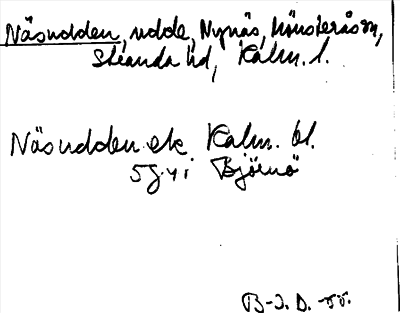 Näsudden, udde, Nynäs, Mönsterås sn,
Stranda hd, Kalm. l.
Näsudden ek Kalm. bl.
5G 4i Björnö
B-I. D. -55.